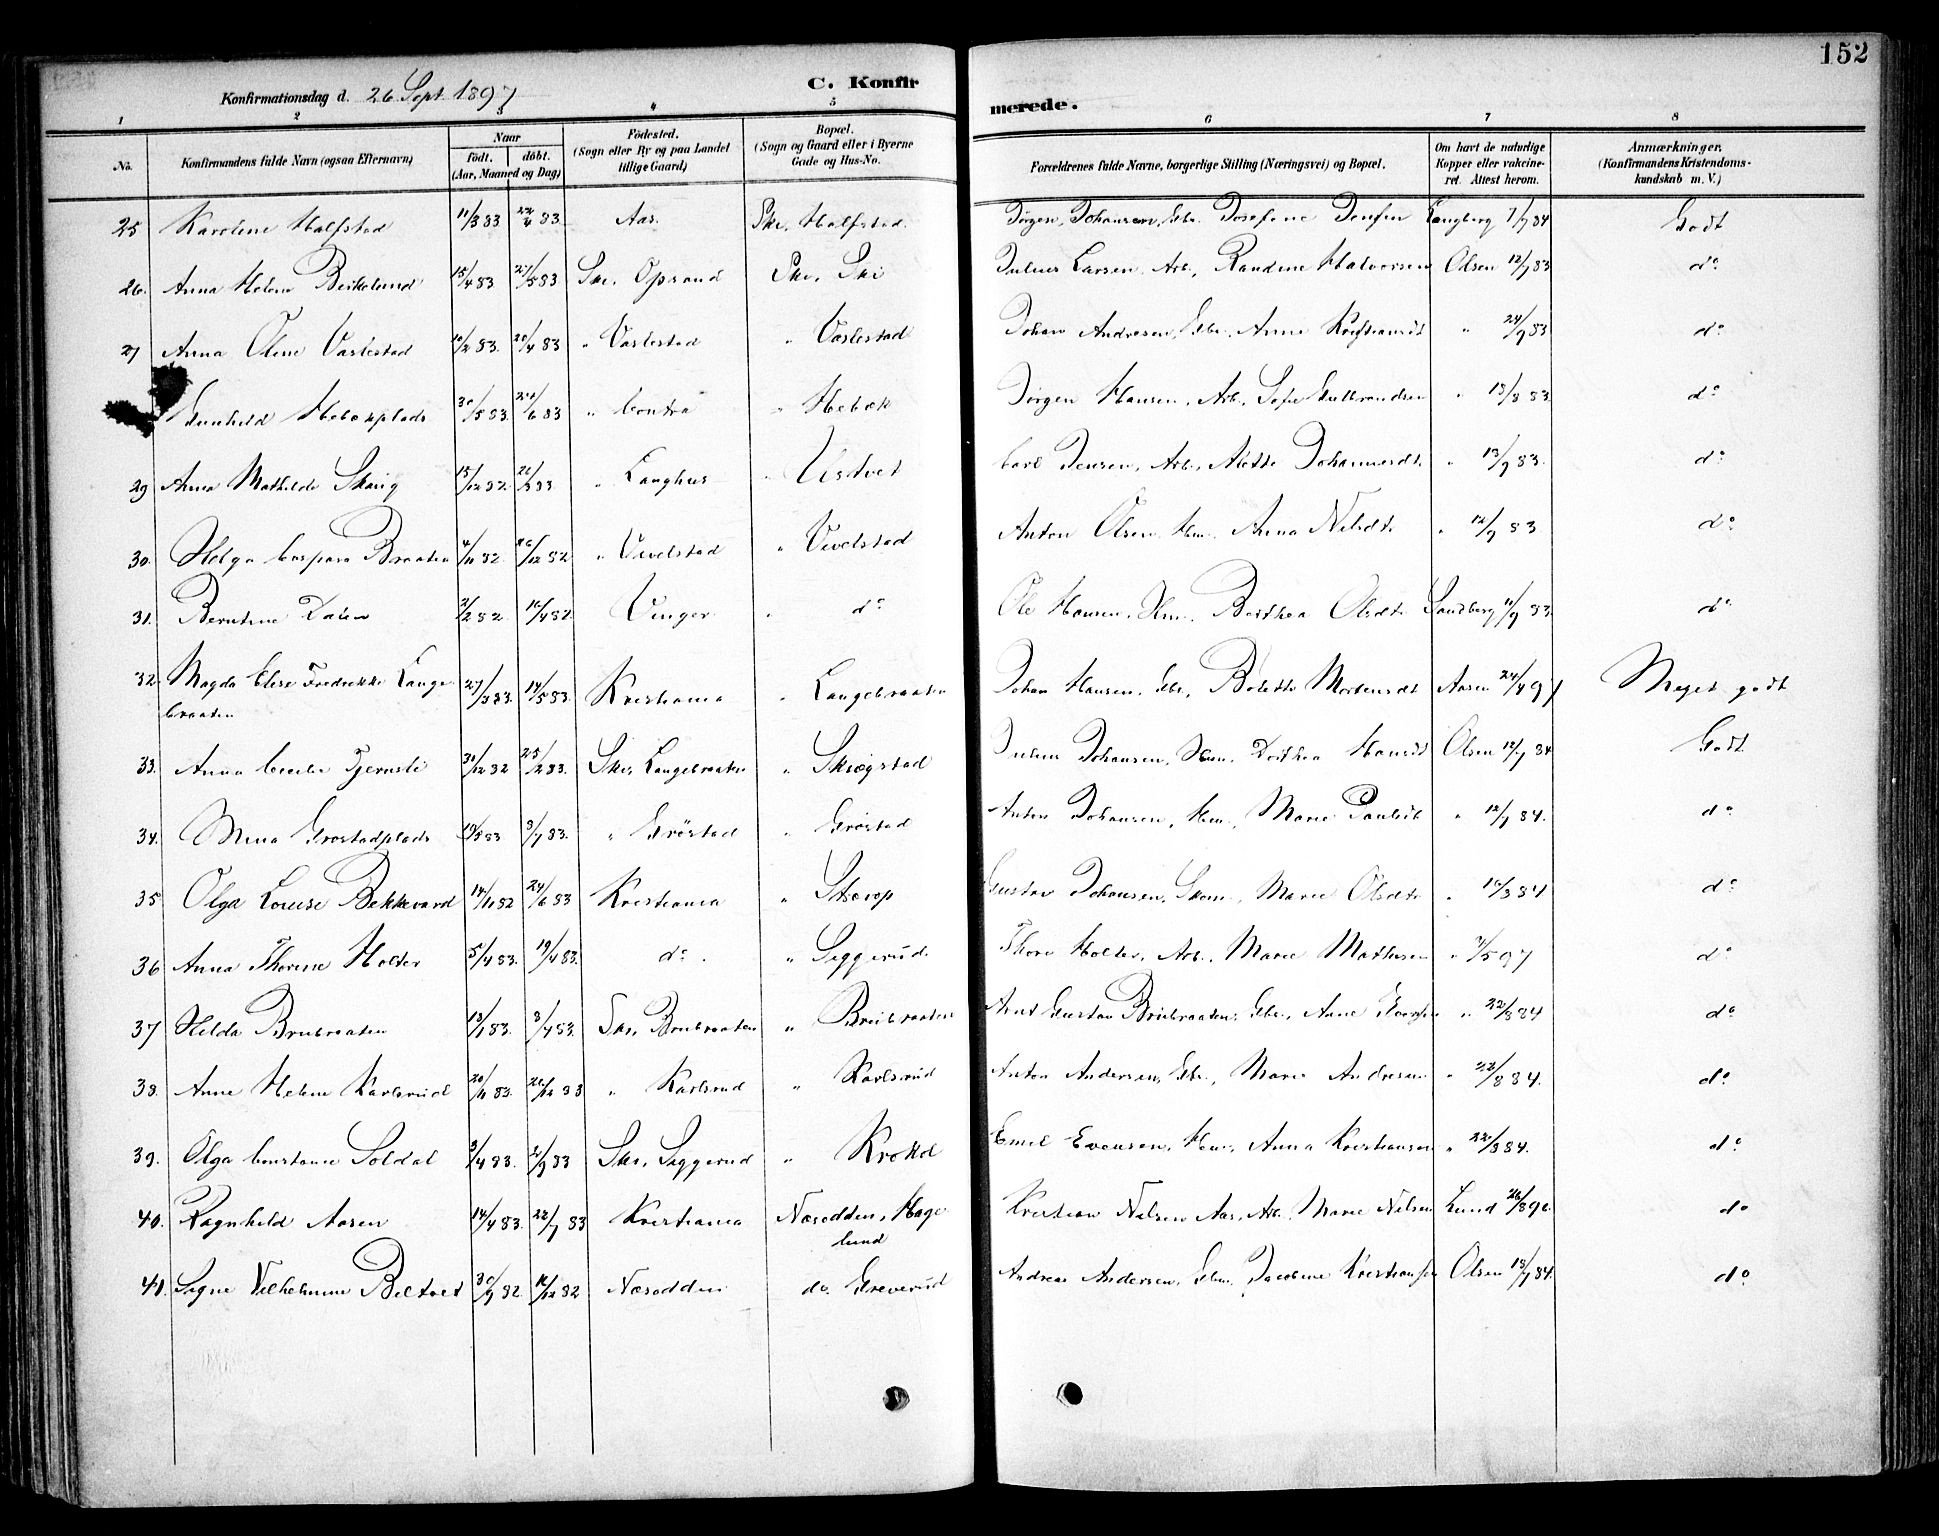 152
Konfirmationsdag d. 26 Sept. 1897
C. Konfir
merede.
1 2 3 4 5 6 7 8
No. Konfirmandens fulde Navn (ogsaa Efternavn) Naar födt. döbt. (Aar, Maaned og Dag) Födested. (Sogn eller By og paa Landet tillige Gaard) Bopæl. (Sogn og Gaard eller i Byerne Gade og Hus-No. Forældrenes fulde Navne, borgerlige Stilling (Næringsvei) og Bopæl. Om havt de naturlige Kopper eller vakcineret. Attest herom. Anmærkninger. (Konfirmandens Kristendomskundskab m. V.)
25 Karoline Halfstad 11/3 83 22/4 83 Aas. Ski, Halfstad. Jørgen Johansen, Gbr. Josefine Langberg 7/7 84 Godt
26. Anna Helene Birkelund 15/4 83 27/5 83 Ski, Opsand Ski, Ski Julius Larsen, Arb., Randine Halvorsen Olsen 12/7 83 do
27 Anna Oline Vaslestad 10/2 83. 20/4 83 " Vaslestad " Vaslestad Johan Andresen, Gbr. Anne " 24/9 83 do
Gunhild Hebekplads 30/5 83. 24/6 83 " Contra " Hebæk Jørgen Hansen, Arb., Sofie Gulbrandsen " 13/8 83 do
29 Anna Mathilde Skoug 15/12 82 26/3 83 " Langhus " Ustvet Carl Jensen, Arb., Alette Johannesdt. " 13/9 83. do
30. Helga Caspara Braaten 4/11 82 26/12 82 " Vevelstad " Vevelstad Anton Olsen, Hm. Anna Nilsdt. " 12/9 83 do
31. Berntine Dalen 2/2 82 16/4 82 Vinger " do Ole Hansen, Hm. Berthea Olsdt. Sandberg 11/9 83. do
32. Magda Elise Fredrikke Lange 27/3 83. 14/5 83 Kristiania " Langebraaten Johan Hansen, Gbr., Bolette Mortensdt Aasen 24/4 97 Meget godt
braaten
33. Anna Cecilie Tjernsli 30/12 82 25/2 83. Ski, Langebraaten " Skrøgstad Julius Johansen, Hm. Dorthea Hansdt Olsen 12/7 84 Godt
34. Mina Grøstadplads 10/5 83 3/7 83. " Grøstad " Grøstad Anton Johansen, Hm., Marie Paulsdt " 12/7 84. do
35 Olga Lovise Bekkevard 14/11 82 24/6 83 Kristiania " Skorup Gustav Johansen, Skom., Marie Olsdt. " 10/3 84 do
36 Anna Thorine Holter 5/4 83. 19/4 83. do. " Siggerud. Thore Holter, Arb., Marie Mathisen " 7/5 97 do
37 Hilda Brubraaten 13/1 83. 8/4 83. Ski, Brubraaten " Brubraaten Arnt Gustav Brubraaten, Gbr., Anne " 22/8 84 do
38. Anne Helene Karlsrud 20/11 83. 26/12 83 " Karlsrud " Karlsrud Anton Andersen, Gbr., Marie Andresen " 22/8 84. do
39. Olga Constance Soldal 3/4 83. 2/9 83 Ski, Siggerud " Krokd Emil Evensen, Hm., Anna Kristiansen " 22/8 84. do
40. Ragnhild Aasen 14/4 83. 22/7 83 Kristiania Næsodden, Hage Kristian Nilsen Aas, Arb. Marie Nilsen Lund 26/8 90. do
lund
41. Signe Vilhelmine Bletvet 30/9 82. 10/12 82 Næsodden do. Greverud Andreas Andersen, Gbr. Jacobine Kristiansen Olsen 13/7 84. do